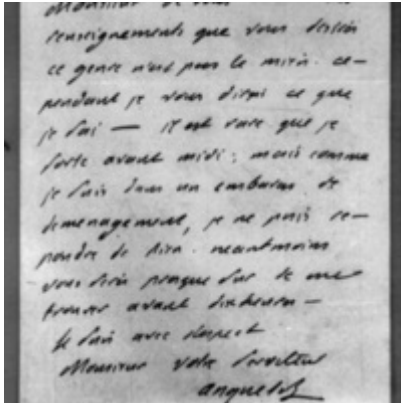 Monsieur
renseignements que vous desirés
ce genre n'est pas le mien. ce-
pendant je vous dirai ce que
je sai — il est rare que je
sorte avant midi; mais comme
je suis dans un embaras de
demenagement, je ne puis re-
pondre de rien. neantmoins
vous seréz presque sur de me
trouver avant dix heures —
Je suis avec respect
Monsieur votre serviteur